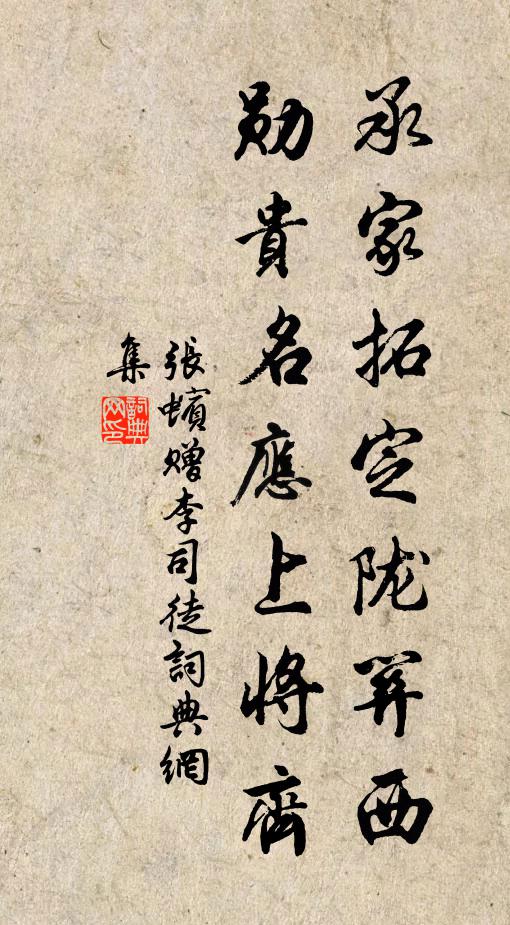 承家拓定陇關西
勛貴名應上將齊
張蠙贈李司徒詞典網
集
詞典
网印